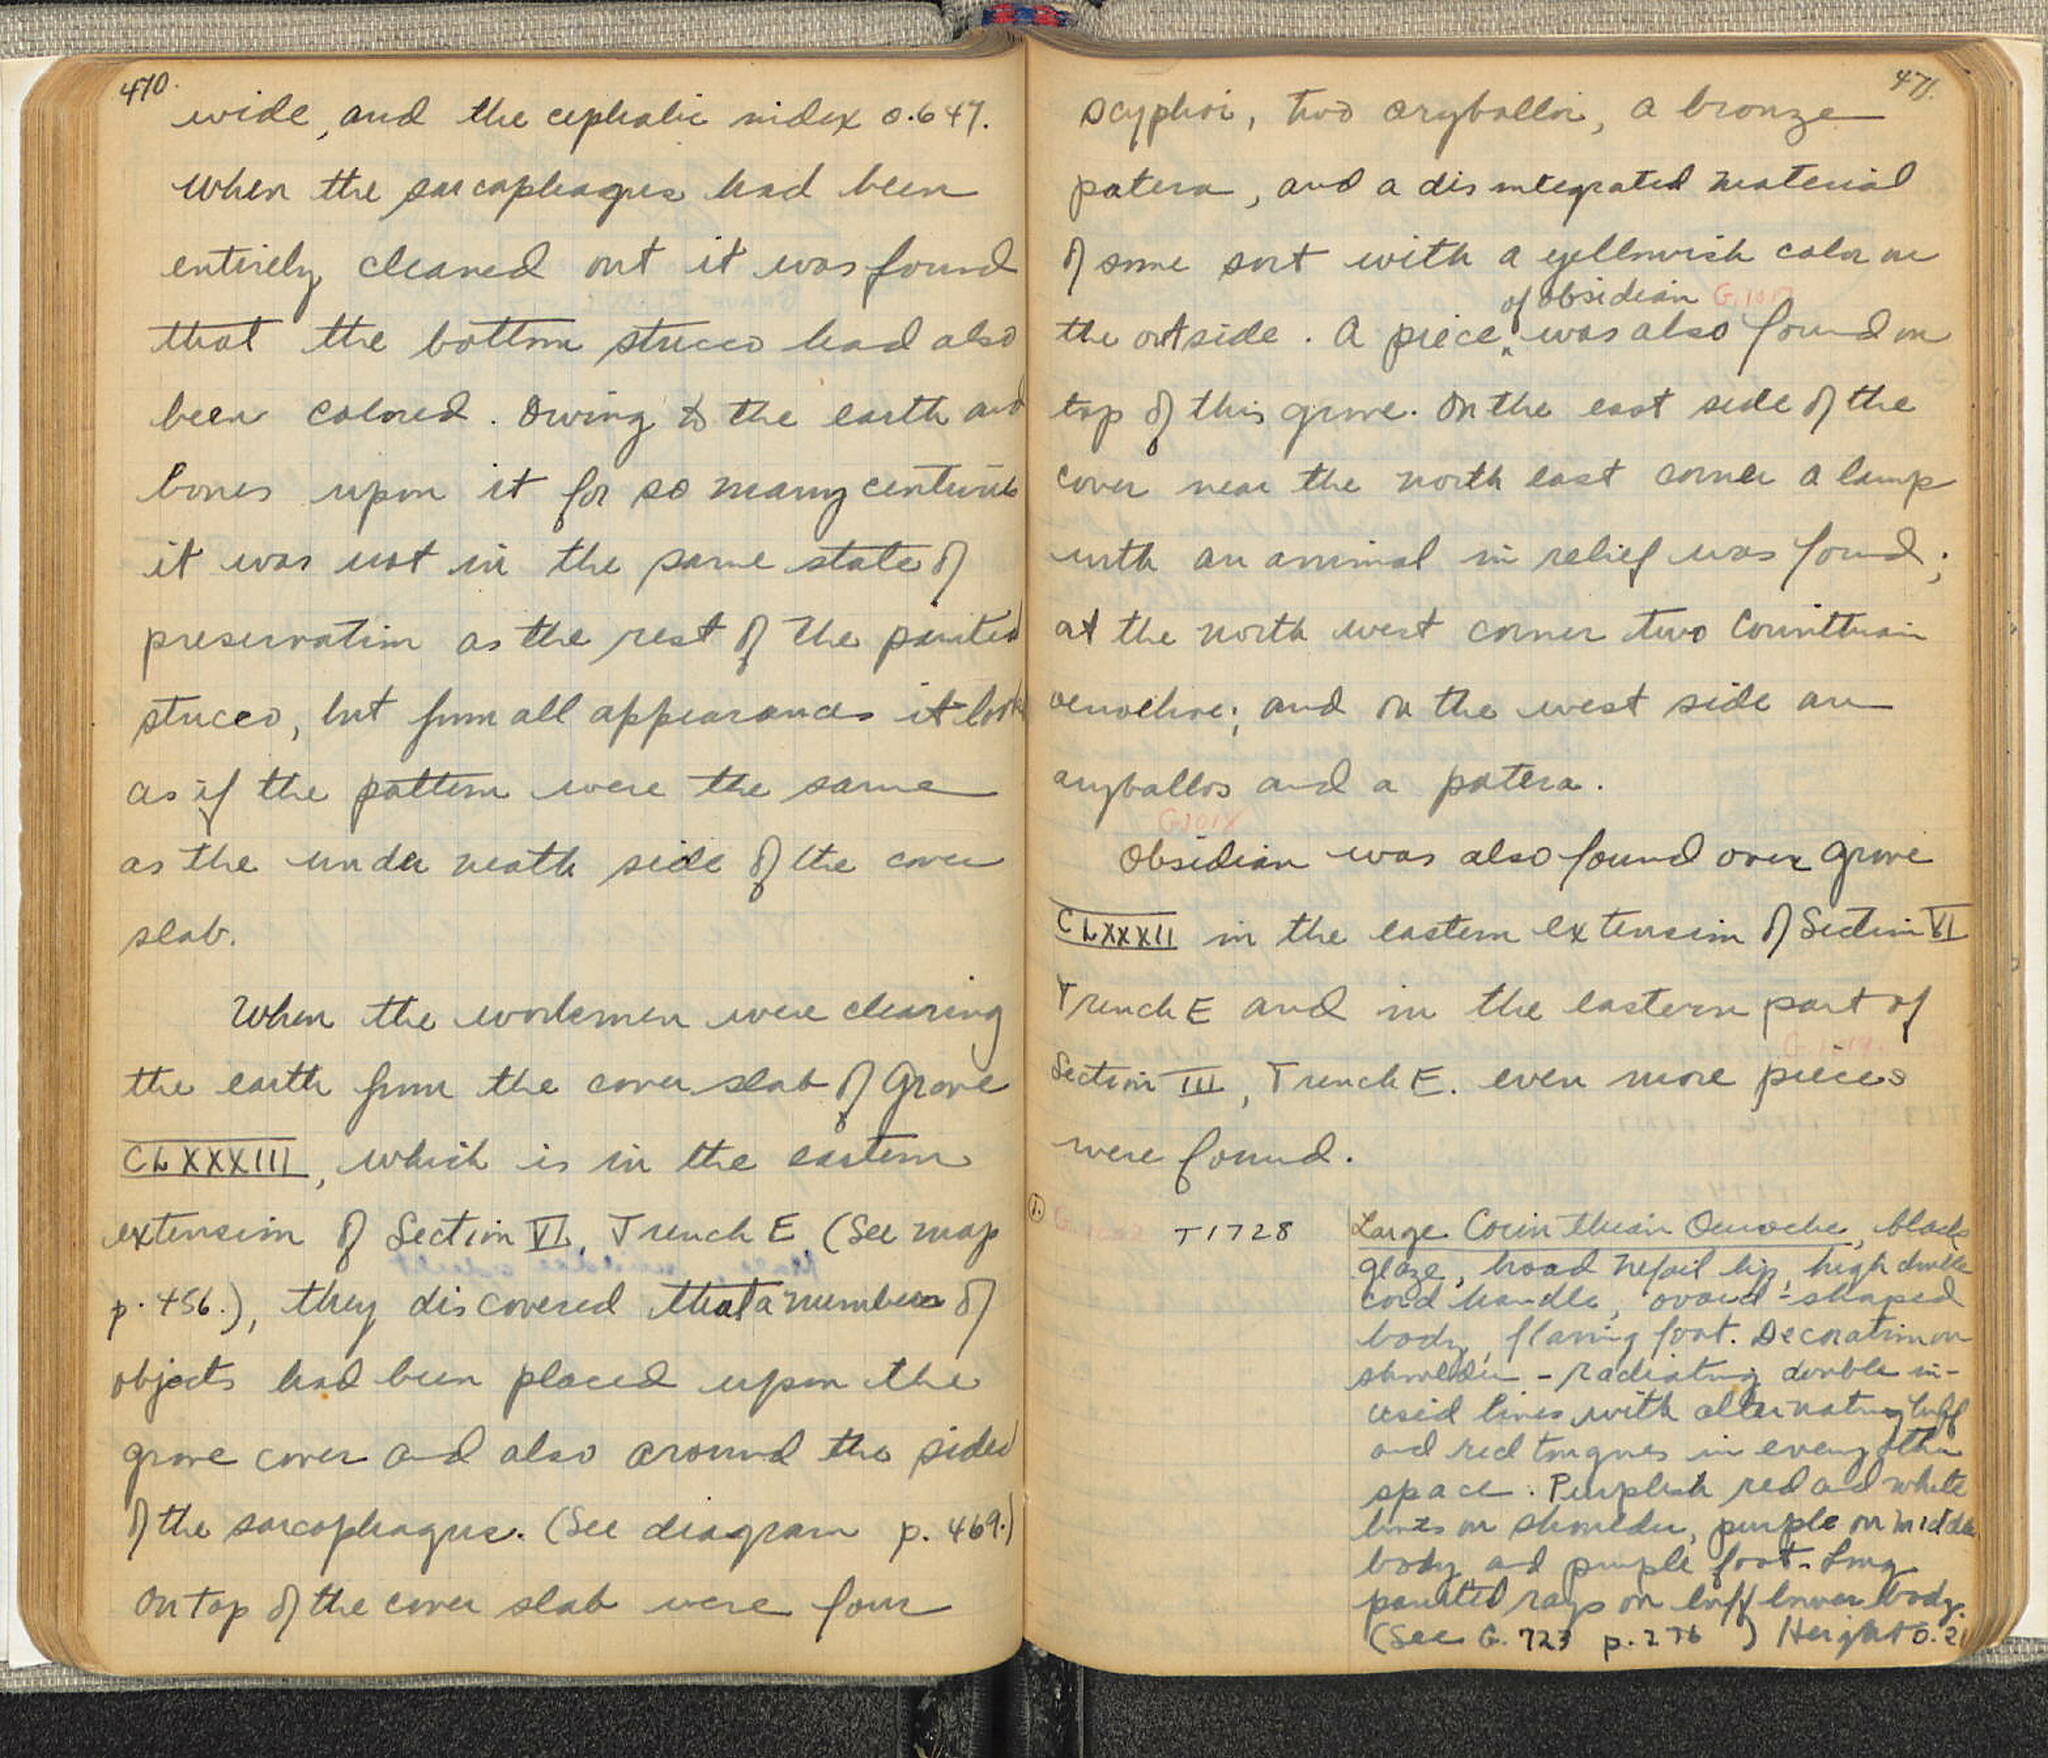 470.
wide, and the cephalic index 0.647.
When the sarcophagus had been
entirely cleaned out it was found
that the bottom stucco had also
been colored. Owing to the earth and
bones upon it for so many centuries
it was not in the same state of
preservation as the rest of the painted
stucco, but from all appearances it looks
as if the pattern were the same
as the under neath side of the cover
slab.
When the workmen were clearing
the earth from the cover slab of Grave
CLXXXIII, which is in the eastern
extension of Section VI, Trench E (See map
p. 456.), they discovered that a number of
objects had been placed upon the
grave cover and also around the sides
of the sarcophagus. (See diagram p. 469.)
On top of the cover slab were four
471.
scyphoi, two aryballoi, a bronze
patera, and a disintegrated material
of some sort with a yellowish color on
of obsidian G.1017
the outside. A piece ^ was also found on
top of this grave. On the east side of the
cover near the north east corner a lamp
with an animal in relief was found;
at the north west corner two Corinthian
oenochoe; and on the west side an
aryballos and a patera.
G.1018
Obsidian was also found over grave
CLXXXII in the eastern extension of Section VI
Trench E and in the eastern part of
G.1019.
Section III, Trench E. even more pieces
were found.
1. T1728 Large Corinthian Oenochoe, black
glaze, broad trefoil lip, high double
cord handle, ovoid-shaped
body, flaring foot. Decoration on
shoulder - radiating double in-
cised lines with alternating buff
and red tongues in every other
space. Purplish red and white
lines on shoulder, purple on middle
body and purple foot. Long
painted rays on buff lower body.
(See G. 723 p. 276) Height 0.21